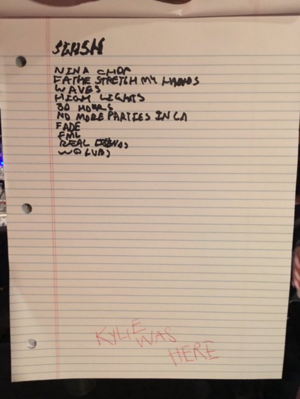 NINA CHOP
FATHE STRETCH MY
WAVES
HIGH LIGHTS
30 HOURS
NO MORE PARTIES IN LA
FADE
FML
REAL
WOLVES
KYLIE
WAS
HERE